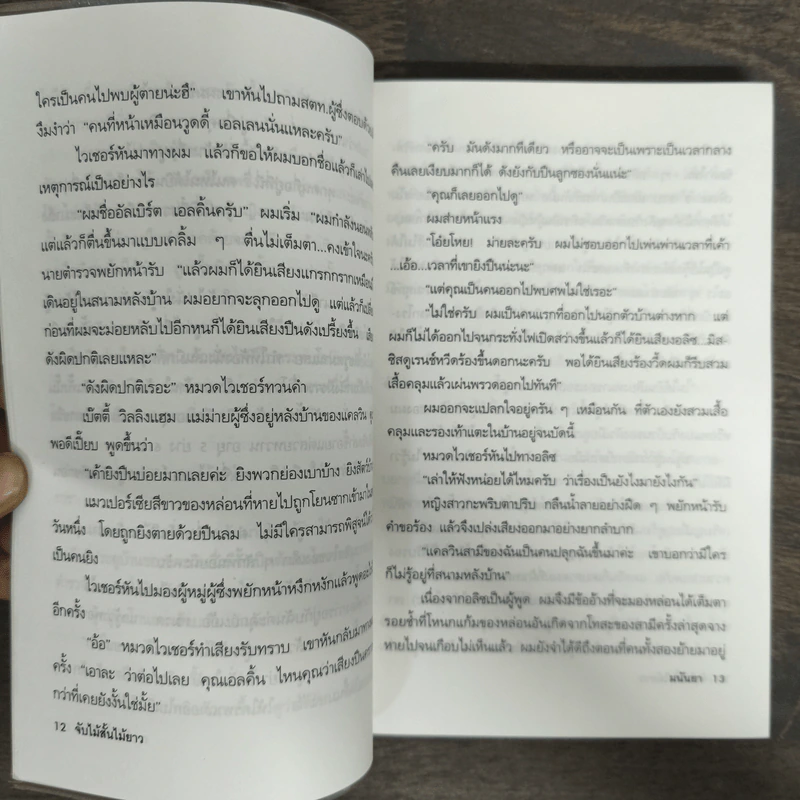 ใครเป็นคนไปพบผู้ตายน่ะฮึ" เขาหันไปถามสตท.ผู้ซึ่งตอบด้วย
งึมงำว่า "คนที่หน้าเหมือนวูดดี้ เอลเลนนั่นแหละครับ"
ไวเชอร์หันมาทางผม แล้วก็ขอให้ผมบอกชื่อแล้วก็เล่า
เหตุการณ์เป็นอย่างไร
"ผมชื่ออัลเบิร์ต เอลคิ้นครับ" ผมเริ่ม "ผมกำลังนอน
แต่แล้วก็ตื่นขึ้นมาแบบเคลิ้ม ๆ ตื่นไม่เต็มตา...คงเข้าใจนะ
นายตำรวจพยักหน้ารับ "แล้วผมก็ได้ยินเสียงแกรกกรากเหมือน
เดินอยู่ในสนามหลังบ้าน ผมอยากจะลุกออกไปดู แต่แล้วก็
ก่อนที่ผมจะม่อยหลับไปอีกหนก็ได้ยินเสียงปืนดังเปรี้ยงขึ้น
ดังผิดปกติเลยแหละ"
"ดังผิดปกติเรอะ" หมวดไวเชอร์ทวนคำ
เบ๊ตตี้ วิลลิงแฮม แม่ม่ายผู้ซึ่งอยู่หลังบ้านของแคลวิน
พอดีเปี๊ยบ พูดขึ้นว่า
"เค้ายิงปืนบ่อยมากเลยค่ะ ยิงพวกย่องเบาบ้าง ยิงสัตว์
แมวเปอร์เซียสีขาวของหล่อนที่หายไปถูกโยนซากเข้ามาใน
วันหนึ่ง โดยถูกยิงตายด้วยปืนลม ไม่มีใครสามารถพิสูจน์ได้
เป็นคนยิง
ไวเชอร์หันไปมองผู้หมู่ผู้ซึ่งพยักหน้าหงึกหงักแล้วพูด
อีกครั้ง
"อ้อ" หมวดไวเชอร์ทำเสียงรับทราบ เขาหันกลับมาทาง
ครั้ง "เอาละ ว่าต่อไปเลย คุณเอลคิ้น ไหนคุณว่าเสียงปืน
กว่าที่เคยยังงั้นใช่มั้ย"
12 จับไม้สั้นไม้ยาว
"ครับ มันดังมากทีเดียว หรืออาจจะเป็นเพราะเป็นเวลากลาง
คืนเลยเงียบมากก็ได้ ดังยังกับปืนลูกซองนั่นแน่ะ"
"คุณก็เลยออกไปดู"
ผมส่ายหน้าแรง
"โอ๊ยโหย! ม่ายละครับ ผมไม่ชอบออกไปเพ่นพ่านเวลาที่เค้า
...เอ้อ...เวลาที่เขายิงปืนน่ะนะ"
"แต่คุณเป็นคนออกไปพบศพไม่ใช่เรอะ"
"ไม่ใช่ครับ ผมเป็นคนแรกที่ออกไปนอกตัวบ้านต่างหาก แต่
ผมก็ไม่ได้ออกไปจนกระทั่งไฟเปิดสว่างขึ้นแล้วก็ได้ยินเสียงอลิซ มิส-
ซิสดูเรนช์หวีดร้องขึ้นดอกนะครับ พอได้ยินเสียงร้องวี้ดผมก็รีบสวม
เสื้อคลุมแล้วเผ่นพรวดออกไปทันที"
ผมออกจะแปลกใจอยู่ครัน ๆ เหมือนกัน ที่ตัวเองยังสวมเสื้อ
คลุมและรองเท้าแตะในบ้านอยู่จนบัดนี้
หมวดไวเชอร์หันไปทางอลิซ
"เล่าให้ฟังหน่อยได้ไหมครับ ว่าเรื่องเป็นยังไงมายังไงกัน"
หญิงสาวกะพริบตาปริบ กลืนน้ำลายอย่างฝืด ๆ พยักหน้ารับ
คำขอร้อง แล้วจึงเปล่งเสียงออกมาอย่างยากลำบาก
"แคลวินสามีของฉันเป็นคนปลุกฉันขึ้นมาค่ะ เขาบอกว่ามีใคร
ก็ไม่รู้อยู่ที่สนามหลังบ้าน"
เนื่องจากอลิซเป็นผู้พูด ผมจึงมีข้ออ้างที่จะมองหล่อนได้เต็มตา
รอยช้ำที่โหนกแก้มของหล่อนอันเกิดจากโทสะของสามีครั้งล่าสุดจาง
หายไปจนเกือบไม่เห็นแล้ว ผมยังจำได้ดีถึงตอนที่คนทั้งสองย้ายมาอยู่
มนันยา 13